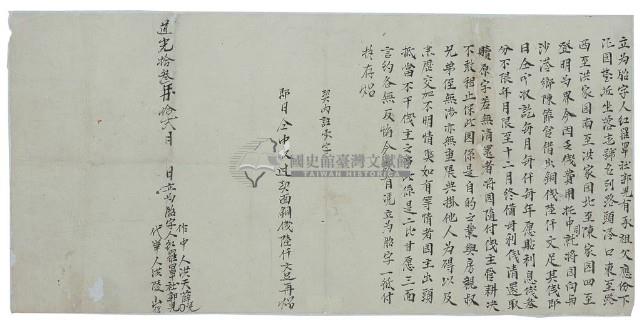 立為胎字人紅羅罩社郭見有承祖欠應份下
沱囝埜坵坐落志號左到路頭港口東至路
西至洪家園南至洪家園北至陳家園四至
登明為界今因乏錢費用托中就將園向與
沙港街陳篩官借出銅錢陸仟文足其錢即
日仝中收訖每月每仟每年愿貼利息錢叁
分不限年月限至十二月終備母利錢清還取
贖原字若無清還者將園隨付錢主管耕決
不敢租止保此園係是自的之業與房親叔
兄弟侄無涉亦無重張典掛他人為碍以及
來歷交加不明情獘如有等情者園主出頭
抵當不干錢主之事此係是二比甘愿三面
言約各無反悔今欲有憑立為胎字一紙付
執存炤
契內註
即日仝中收過契面銅錢陸仟文足再炤
道光拾叁年拾貳月 日立為胎字人紅羅罩社郭見
作中人洪天
代筆人洪陵
國史館臺灣文獻館